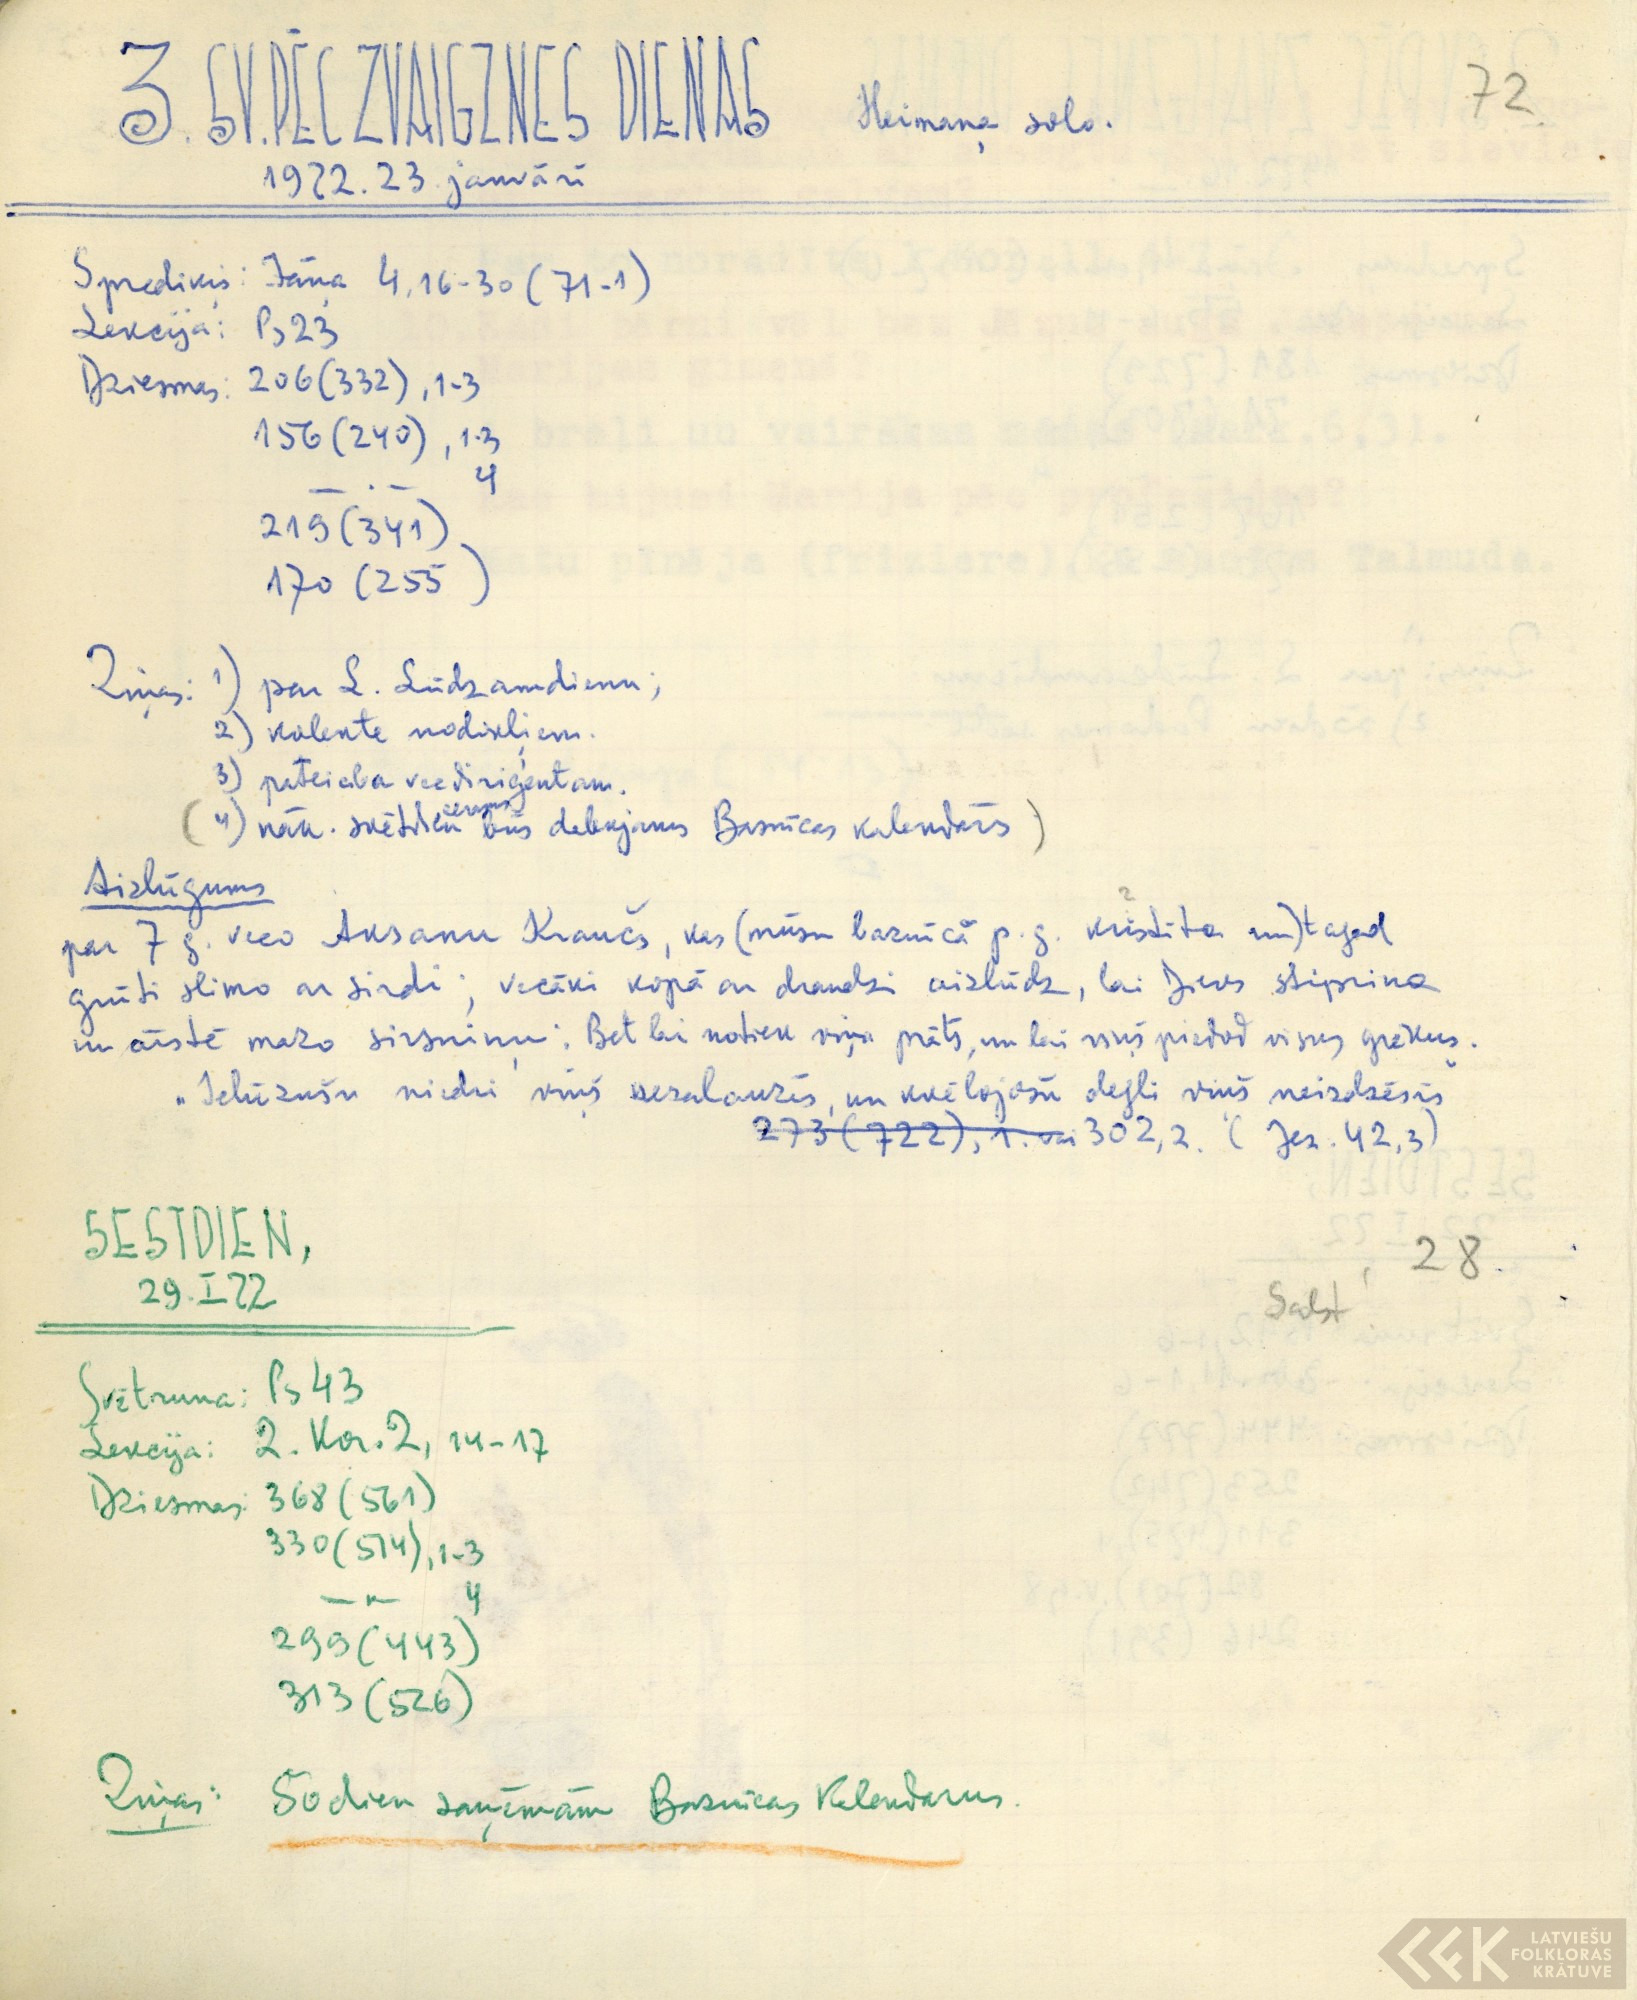 3. SV. PĒC ZVAIGZNES DIENAS
Heimaņa solo.
72
1972. 23. janvārī
Sprediķis: Jāņa 4,16-30 (71-1)
Lekcija: Ps 23
Dziesmas: 206 (332), 1-3
156 (240), 1-3
— . — 4
219 (341)
170 (255)
Ziņas: 1) par L. Lūdzamdienu;
2) kolekte nodokļiem.
3) pateicība viesdiriģentam.
(4) nāk. svētdien cerams būs dabūjams Baznīcas kalendārs)
Aizlūgums
par 7 g. veco Aksanu Kraučs, kas (mūsu baznīcā p. g. kristīta un) tagad
grūti slimo ar sirdi; vecāki kopā ar draudzi aizlūdz, lai Dievs stiprina
un ārstē mazo sirsniņu. Bet lai notiek viņa prāts, un lai viņš piedod visus grēkus.
"Ielūzušu niedri viņš nezalauzīs, un kvēlojošu degli viņš neizdzēsīs
273 (722), 1. vai 302, 2. (Jes. 42,3)
SESTDIEN,
29. I 72
28.
Sadst
Svētruna: Ps 43
Lekcija: 2. Kor. 2, 14-17
Dziesmas: 368 (561)
330 (514), 1-3
— " — 4
299 (443)
313 (526)
Ziņas: Šodien saņēmām Baznīcas Kalendarus.
LATVIEŠU
FOLKLORAS
KRĀTUVE